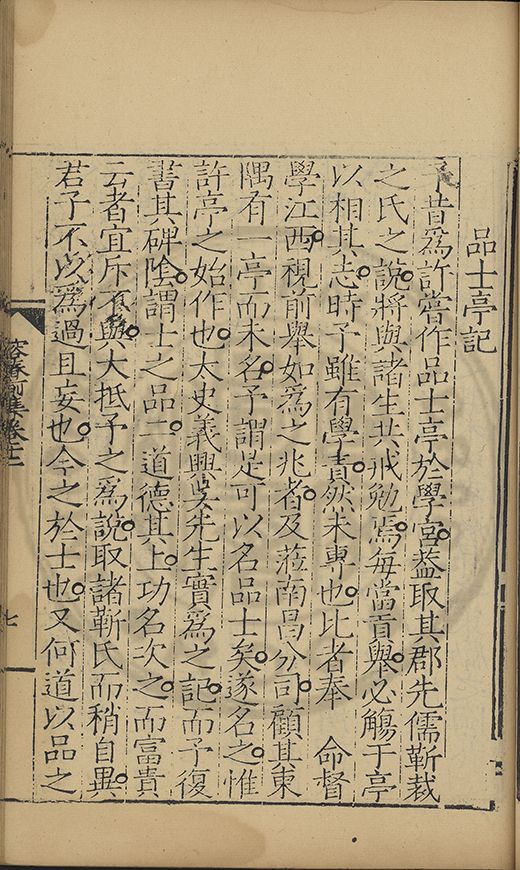 品士亭記
予昔爲許嘗作品士亭於學宮葢取其郡先儒靳裁
之氏之說將與諸生共戒勉焉每當貢舉必觴于亭
以相其志時予雖有學責然未専也比者奉 命督
學江西視前舉如爲之兆者及蒞南昌公司顧其東
隅有一亭而未名予謂是可以名品士矣遂名之惟
許亭之始作也太史義興吳先生實爲之記而予復
書其碑陰謂士之品二道德其上功名次之而富貴
云者宜斥不與大抵予之爲說取諸靳氏而稍自異
君子不以爲過且妄也今之於士也又何道以品之
容春前集卷十二
七